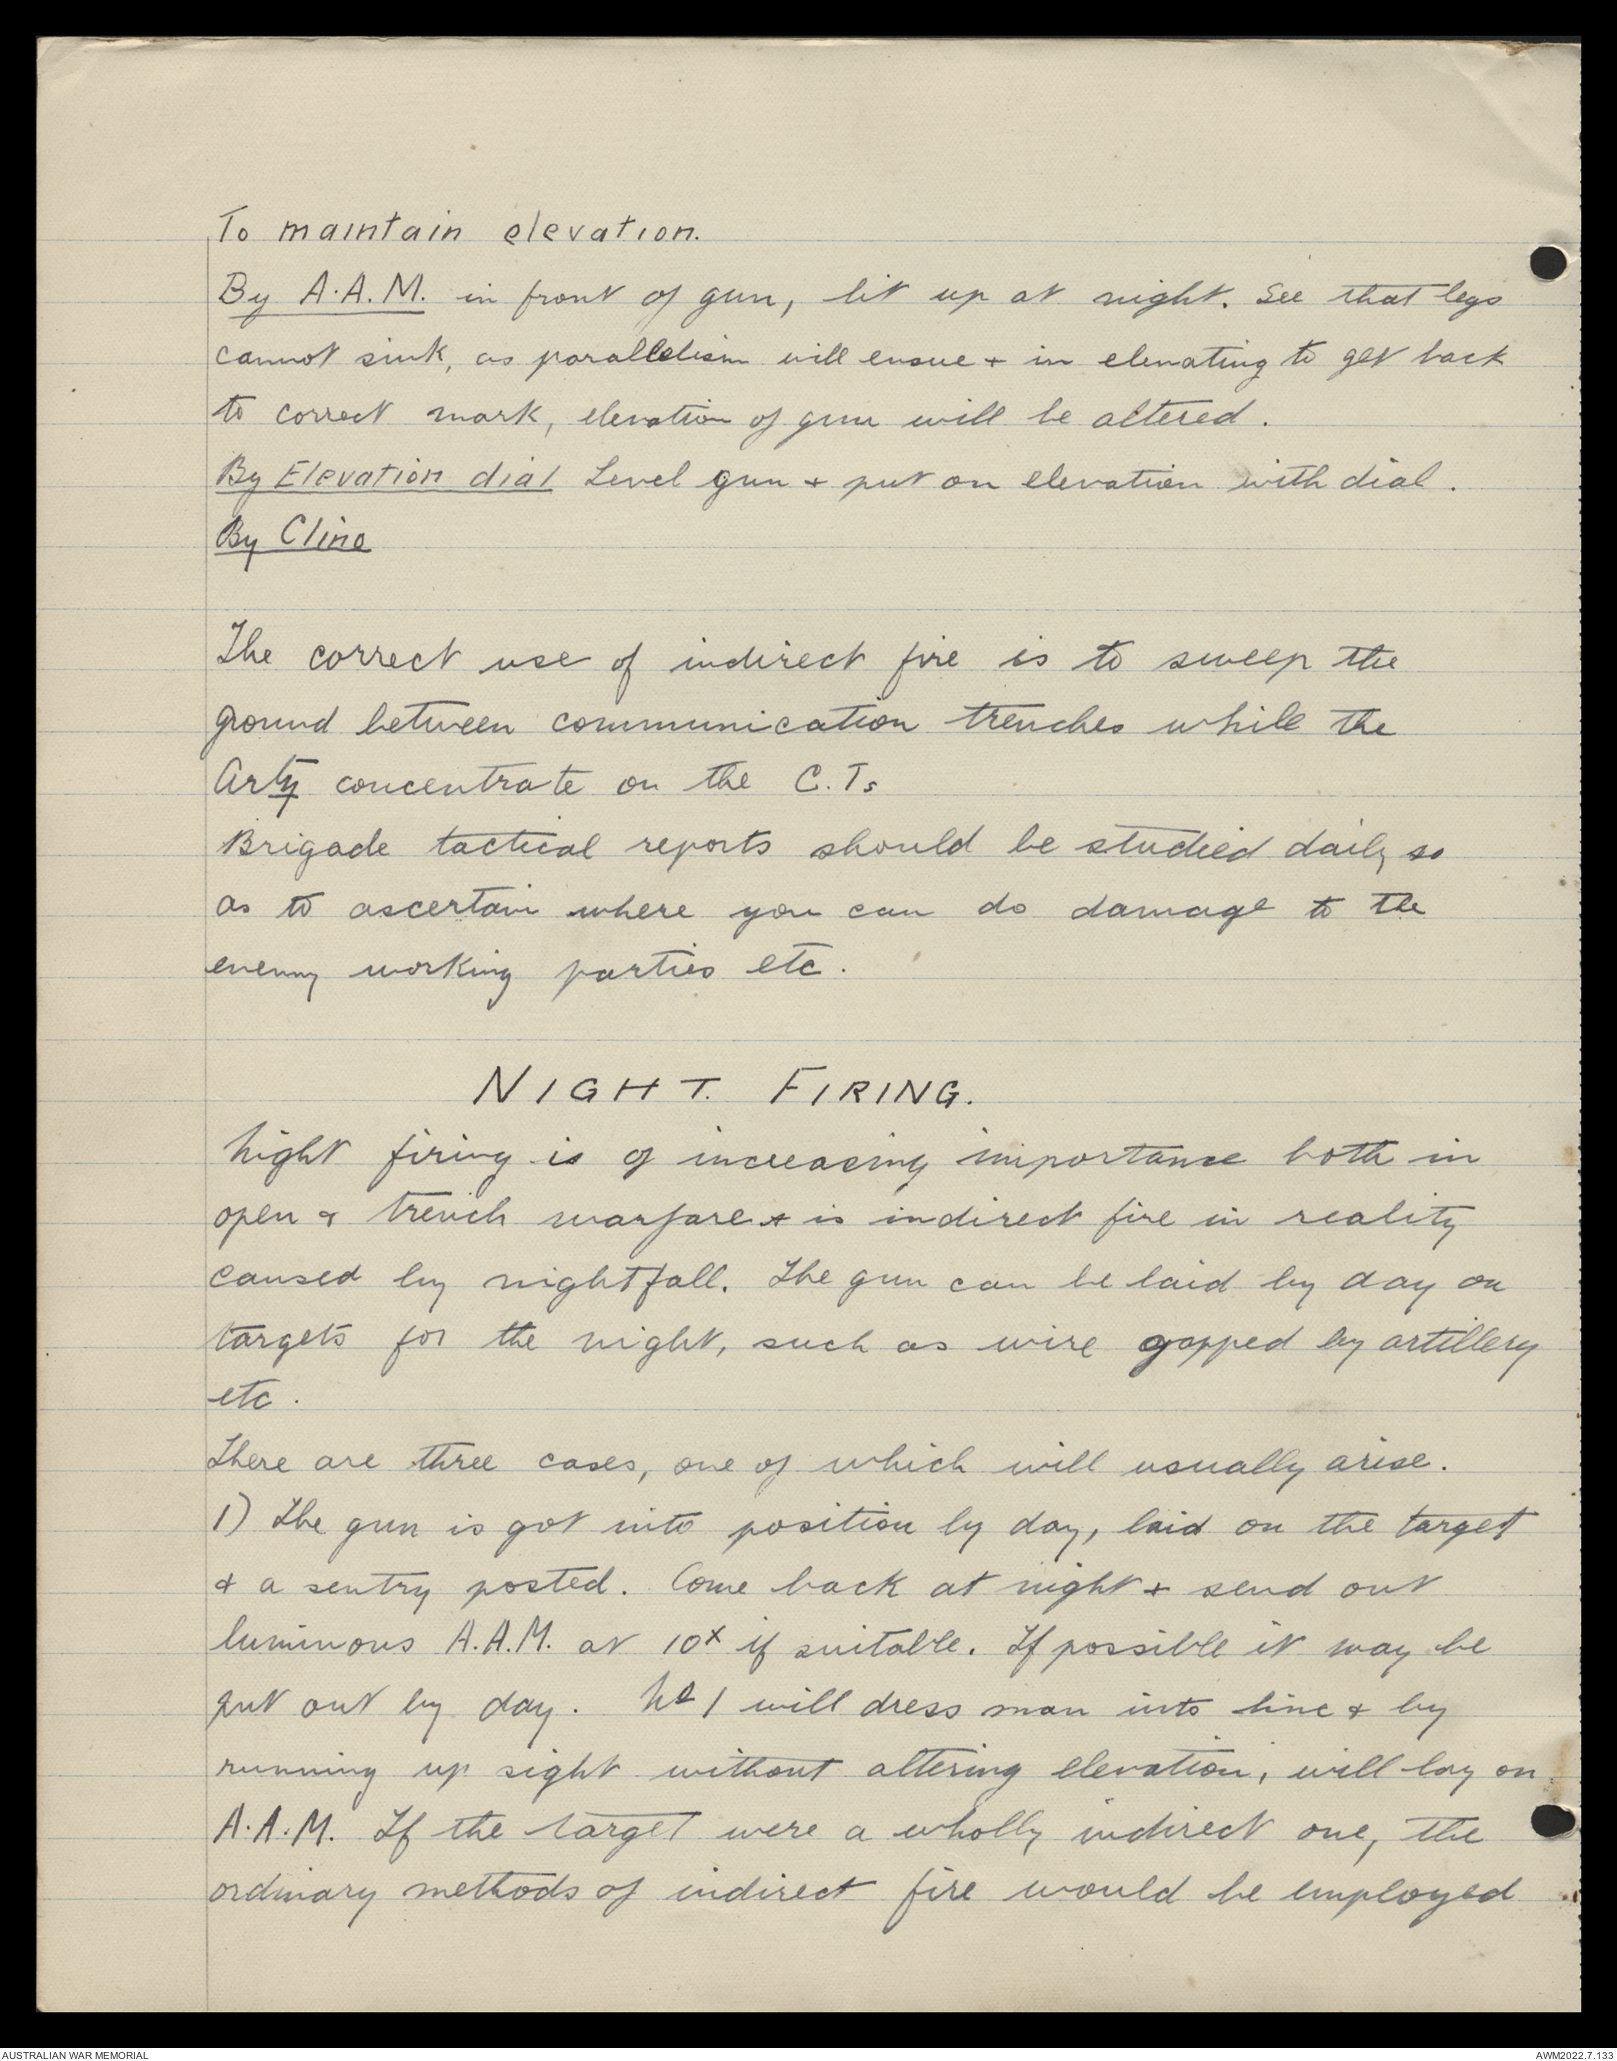 To maintain elevation.
By A.A.M. in front of gun, lit up at night. See that legs
cannot sink, as parallelism will ensue + in elevating to get back
to correct mark, elevation of gun will be altered.
By Elevation dial Level gun + put on elevation with dial.
By Clino
The correct use of indirect fire is to sweep the
ground between communication trenches while the
Arty concentrate on the C.Ts
Brigade tactical reports should be studied daily so
as to ascertain where you can do damage to the
enemy working parties etc.
NIGHT. FIRING.
Night firing is of increasing importance both in
open & trench warfare & is indirect fire in reality
caused by nightfall. The gun can be laid by day on
targets for the night, such as wire gapped by artillery
etc.
There are three cases, one of which will usually arise.
1) The gun is got into position by day, laid on the target
& a sentry posted. Come back at night + send out
luminous A.A.M. at 10x if suitable. If possible it may be
put out by day. No 1 will dress man into line & by
running up sight without altering elevation, will lay on
A.A.M. If the target were a wholly indirect one, the
ordinary methods of indirect fire would be employed
AUSTRALIAN WAR MEMORIAL
AWM2022.7.133